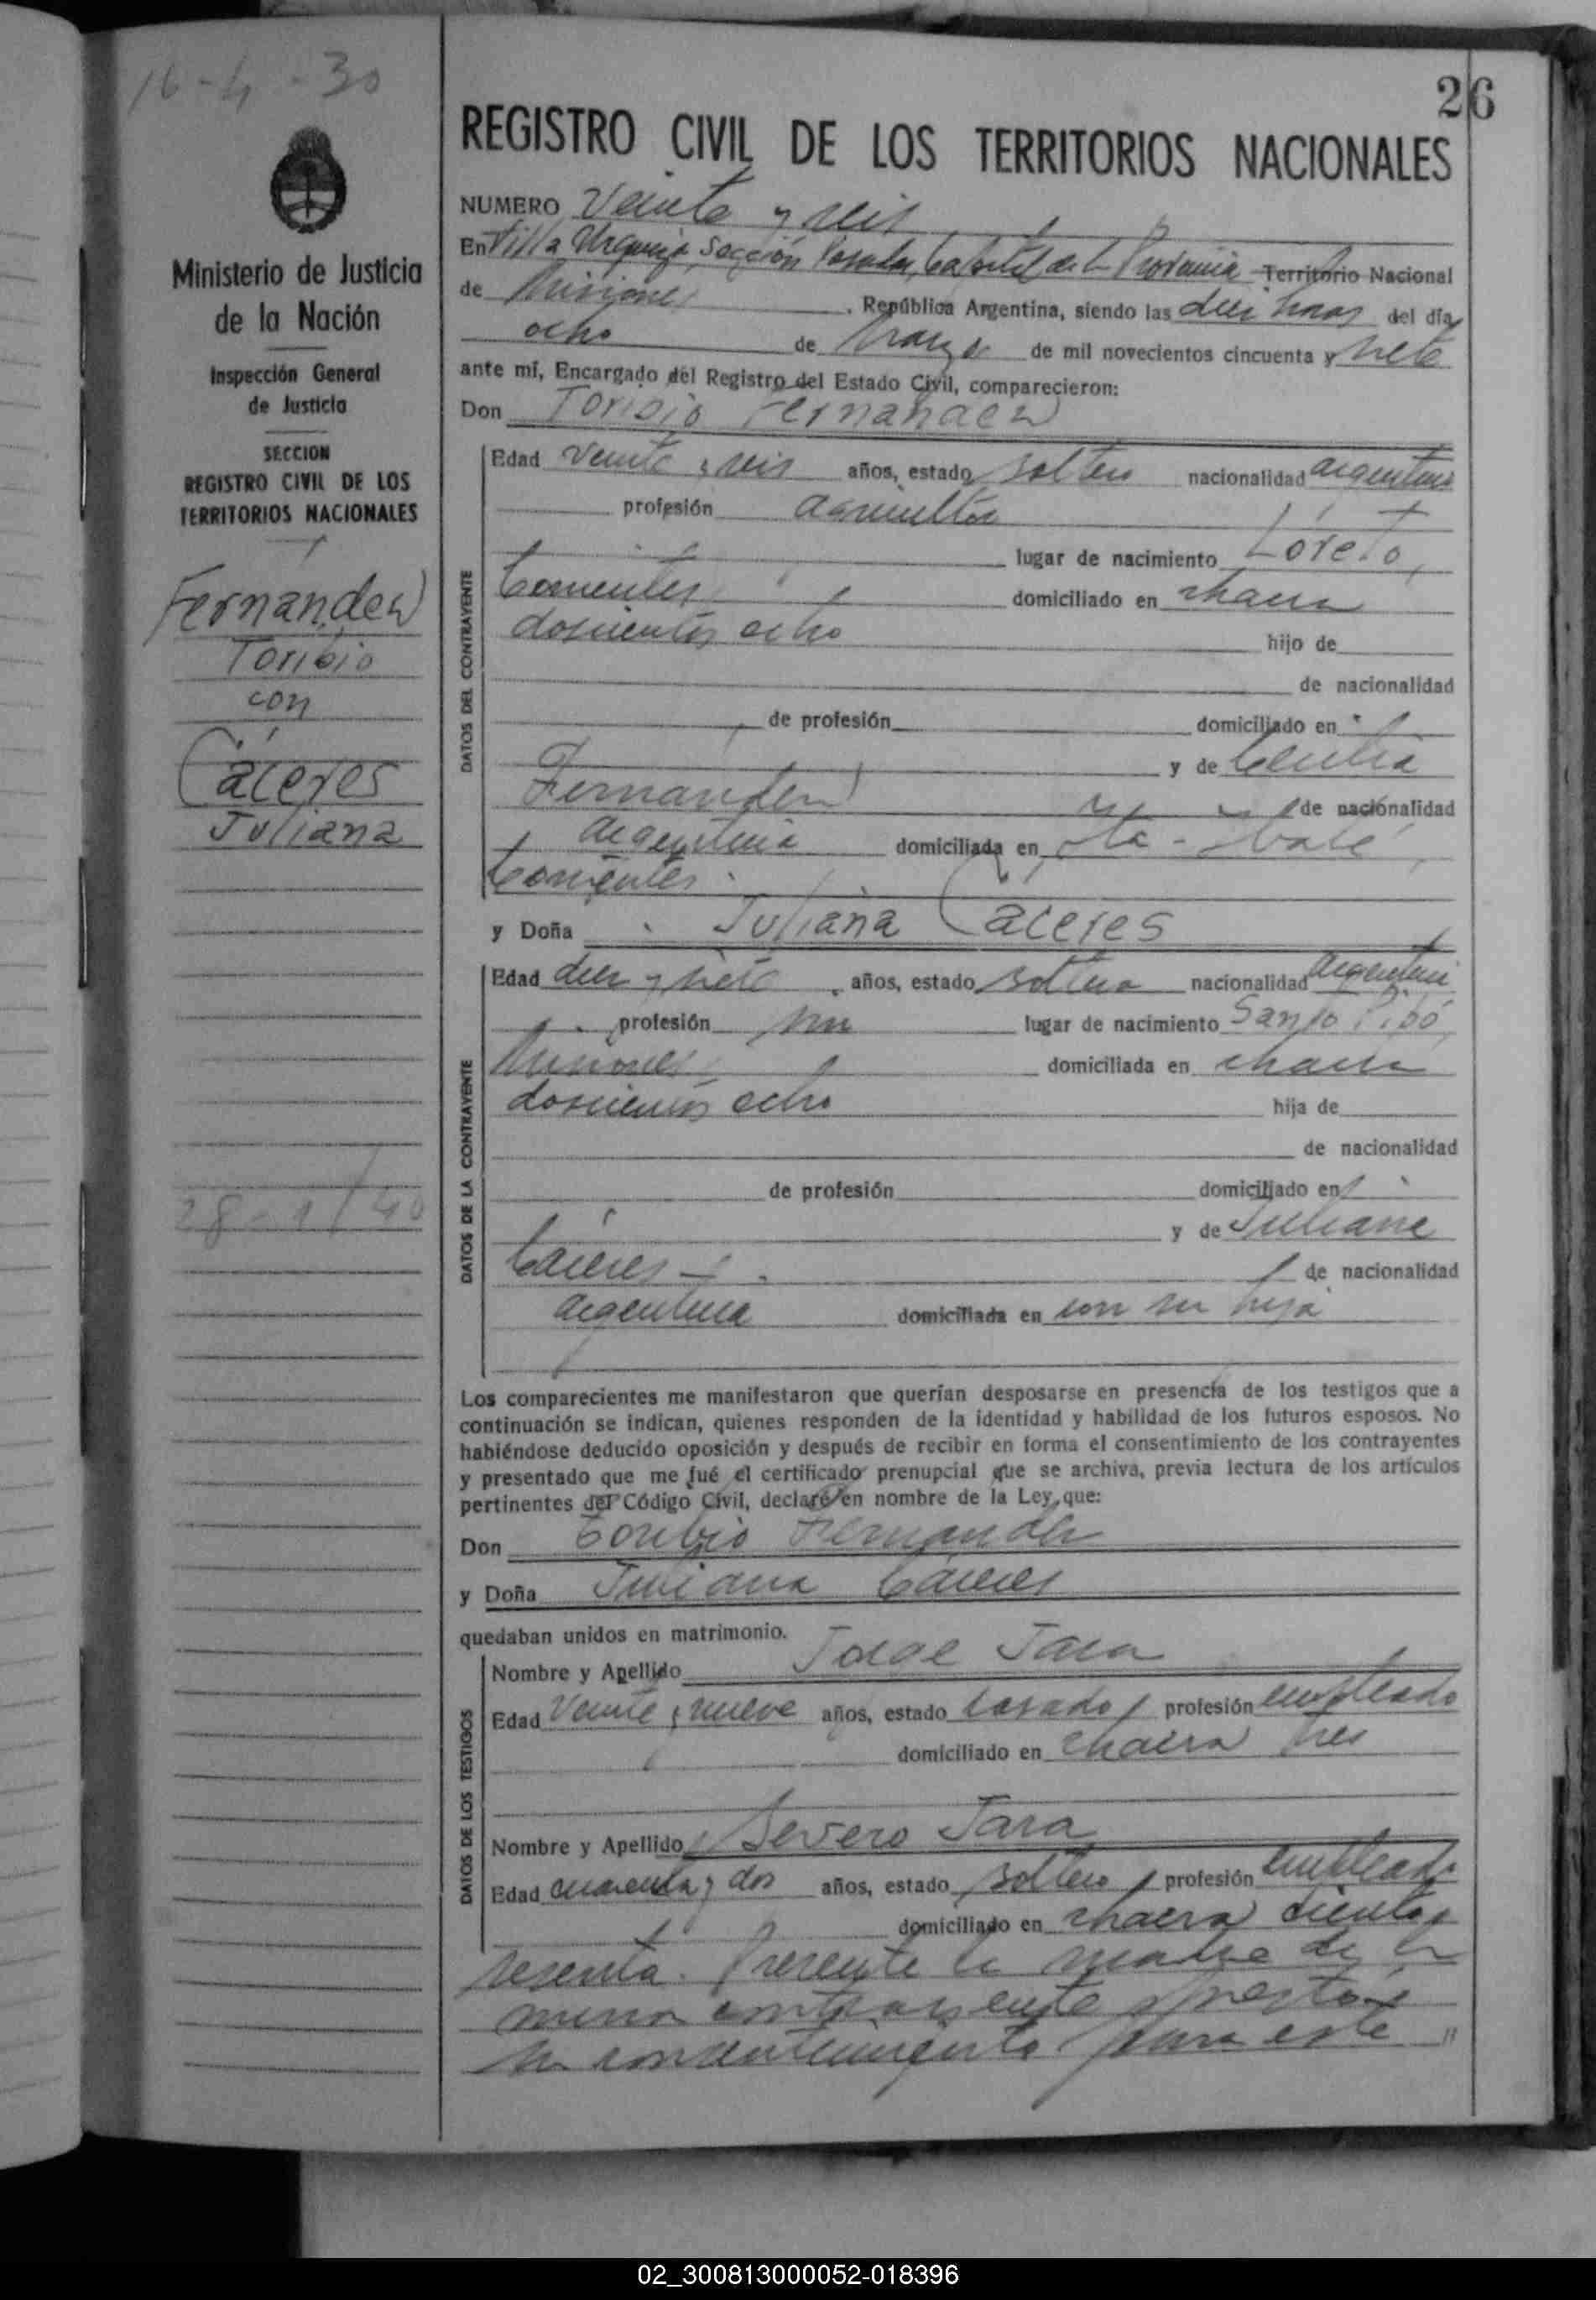 16-4-30
26
Ministerio de Justicia
de la Nación
Inspección General
de Justicia
SECCION
REGISTRO CIVIL DE LOS
TERRITORIOS NACIONALES
Fernandez
Toribio
con
Cáceres
Juliana
28-1/40
REGISTRO CIVIL DE LOS TERRITORIOS NACIONALES
NUMERO Veinte y seis
En Villa Urquiza Sección Posadas, Capital de la Provincia Territorio Nacional
de Misiones . República Argentina, siendo las diez horas del día
ocho de marzo de mil novecientos cincuenta y siete
ante mí, Encargado del Registro del Estado Civil, comparecieron:
Don Toribio Fernandez
DATOS DEL CONTRAYENTE
Edad veinte y seis años, estado soltero nacionalidad argentino
profesión agricultor
lugar de nacimiento Loreto,
Corrientes domiciliado en chacra
doscientos ocho hijo de
de nacionalidad
de profesión domiciliado en
y de Cecilia
Fernandez de nacionalidad
argentina domiciliada en Ibaté,
Corrientes.
y Doña Juliana Cáceres
DATOS DE LA CONTRAYENTE
Edad diez y siete años, estado soltera nacionalidad argentina
profesión lugar de nacimiento Santo Pipó,
Misiones domiciliada en chacra
doscientos ocho hija de
de nacionalidad
de profesión domiciliado en
y de Juliana
Cáceres de nacionalidad
argentina domiciliada en con su hija
Los comparecientes me manifestaron que querían desposarse en presencia de los testigos que a
continuación se indican, quienes responden de la identidad y habilidad de los futuros esposos. No
habiéndose deducido oposición y después de recibir en forma el consentimiento de los contrayentes
y presentado que me fué el certificado prenupcial que se archiva, previa lectura de los artículos
pertinentes del Código Civil, declaré en nombre de la Ley, que:
Don Toribio Fernandez
y Doña Juliana Cáceres
quedaban unidos en matrimonio.
DATOS DE LOS TESTIGOS
Nombre y Apellido Jorge Jara
Edad Veinte y nueve años, estado casado profesión empleado
domiciliado en chacra tres
Nombre y Apellido Severo Jara
Edad cuarenta y dos años, estado soltero profesión empleado
domiciliado en chacra ciento
sesenta. Presente la madre de la
menor contrayente presta
su consentimiento para este "
02_300813000052-018396